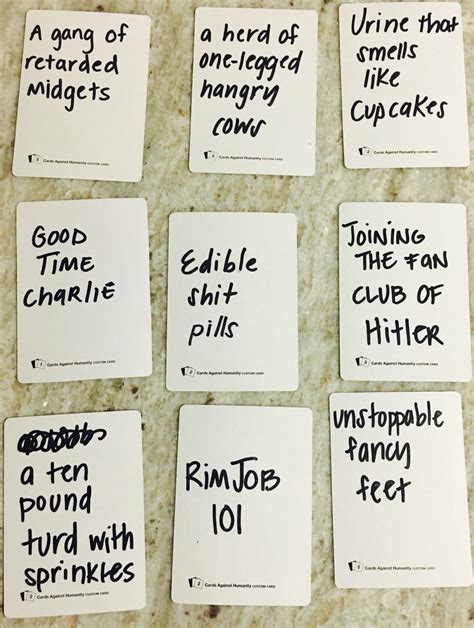 A gang of
retarded
midgets
Cards Against Humanity CUSTOM CARD
a herd of
one-legged
hangry
cows
Cards Against Humanity CUSTOM CARD
Urine that
smells
like
Cupcakes
Cards Against Humanity CUSTOM CARD
GOOD
TIME
CHARLIE
Cards Against Humanity CUSTOM CARD
Edible
shit
pills
Cards Against Humanity CUSTOM CARD
JOINING
THE FAN
CLUB OF
Hitler
Cards Against Humanity CUSTOM CARD
a ten
pound
turd with
sprinkles
Cards Against Humanity CUSTOM CARD
RIM JOB
101
Cards Against Humanity CUSTOM CARD
unstoppable
fancy
feet
Cards Against Humanity CUSTOM CARD